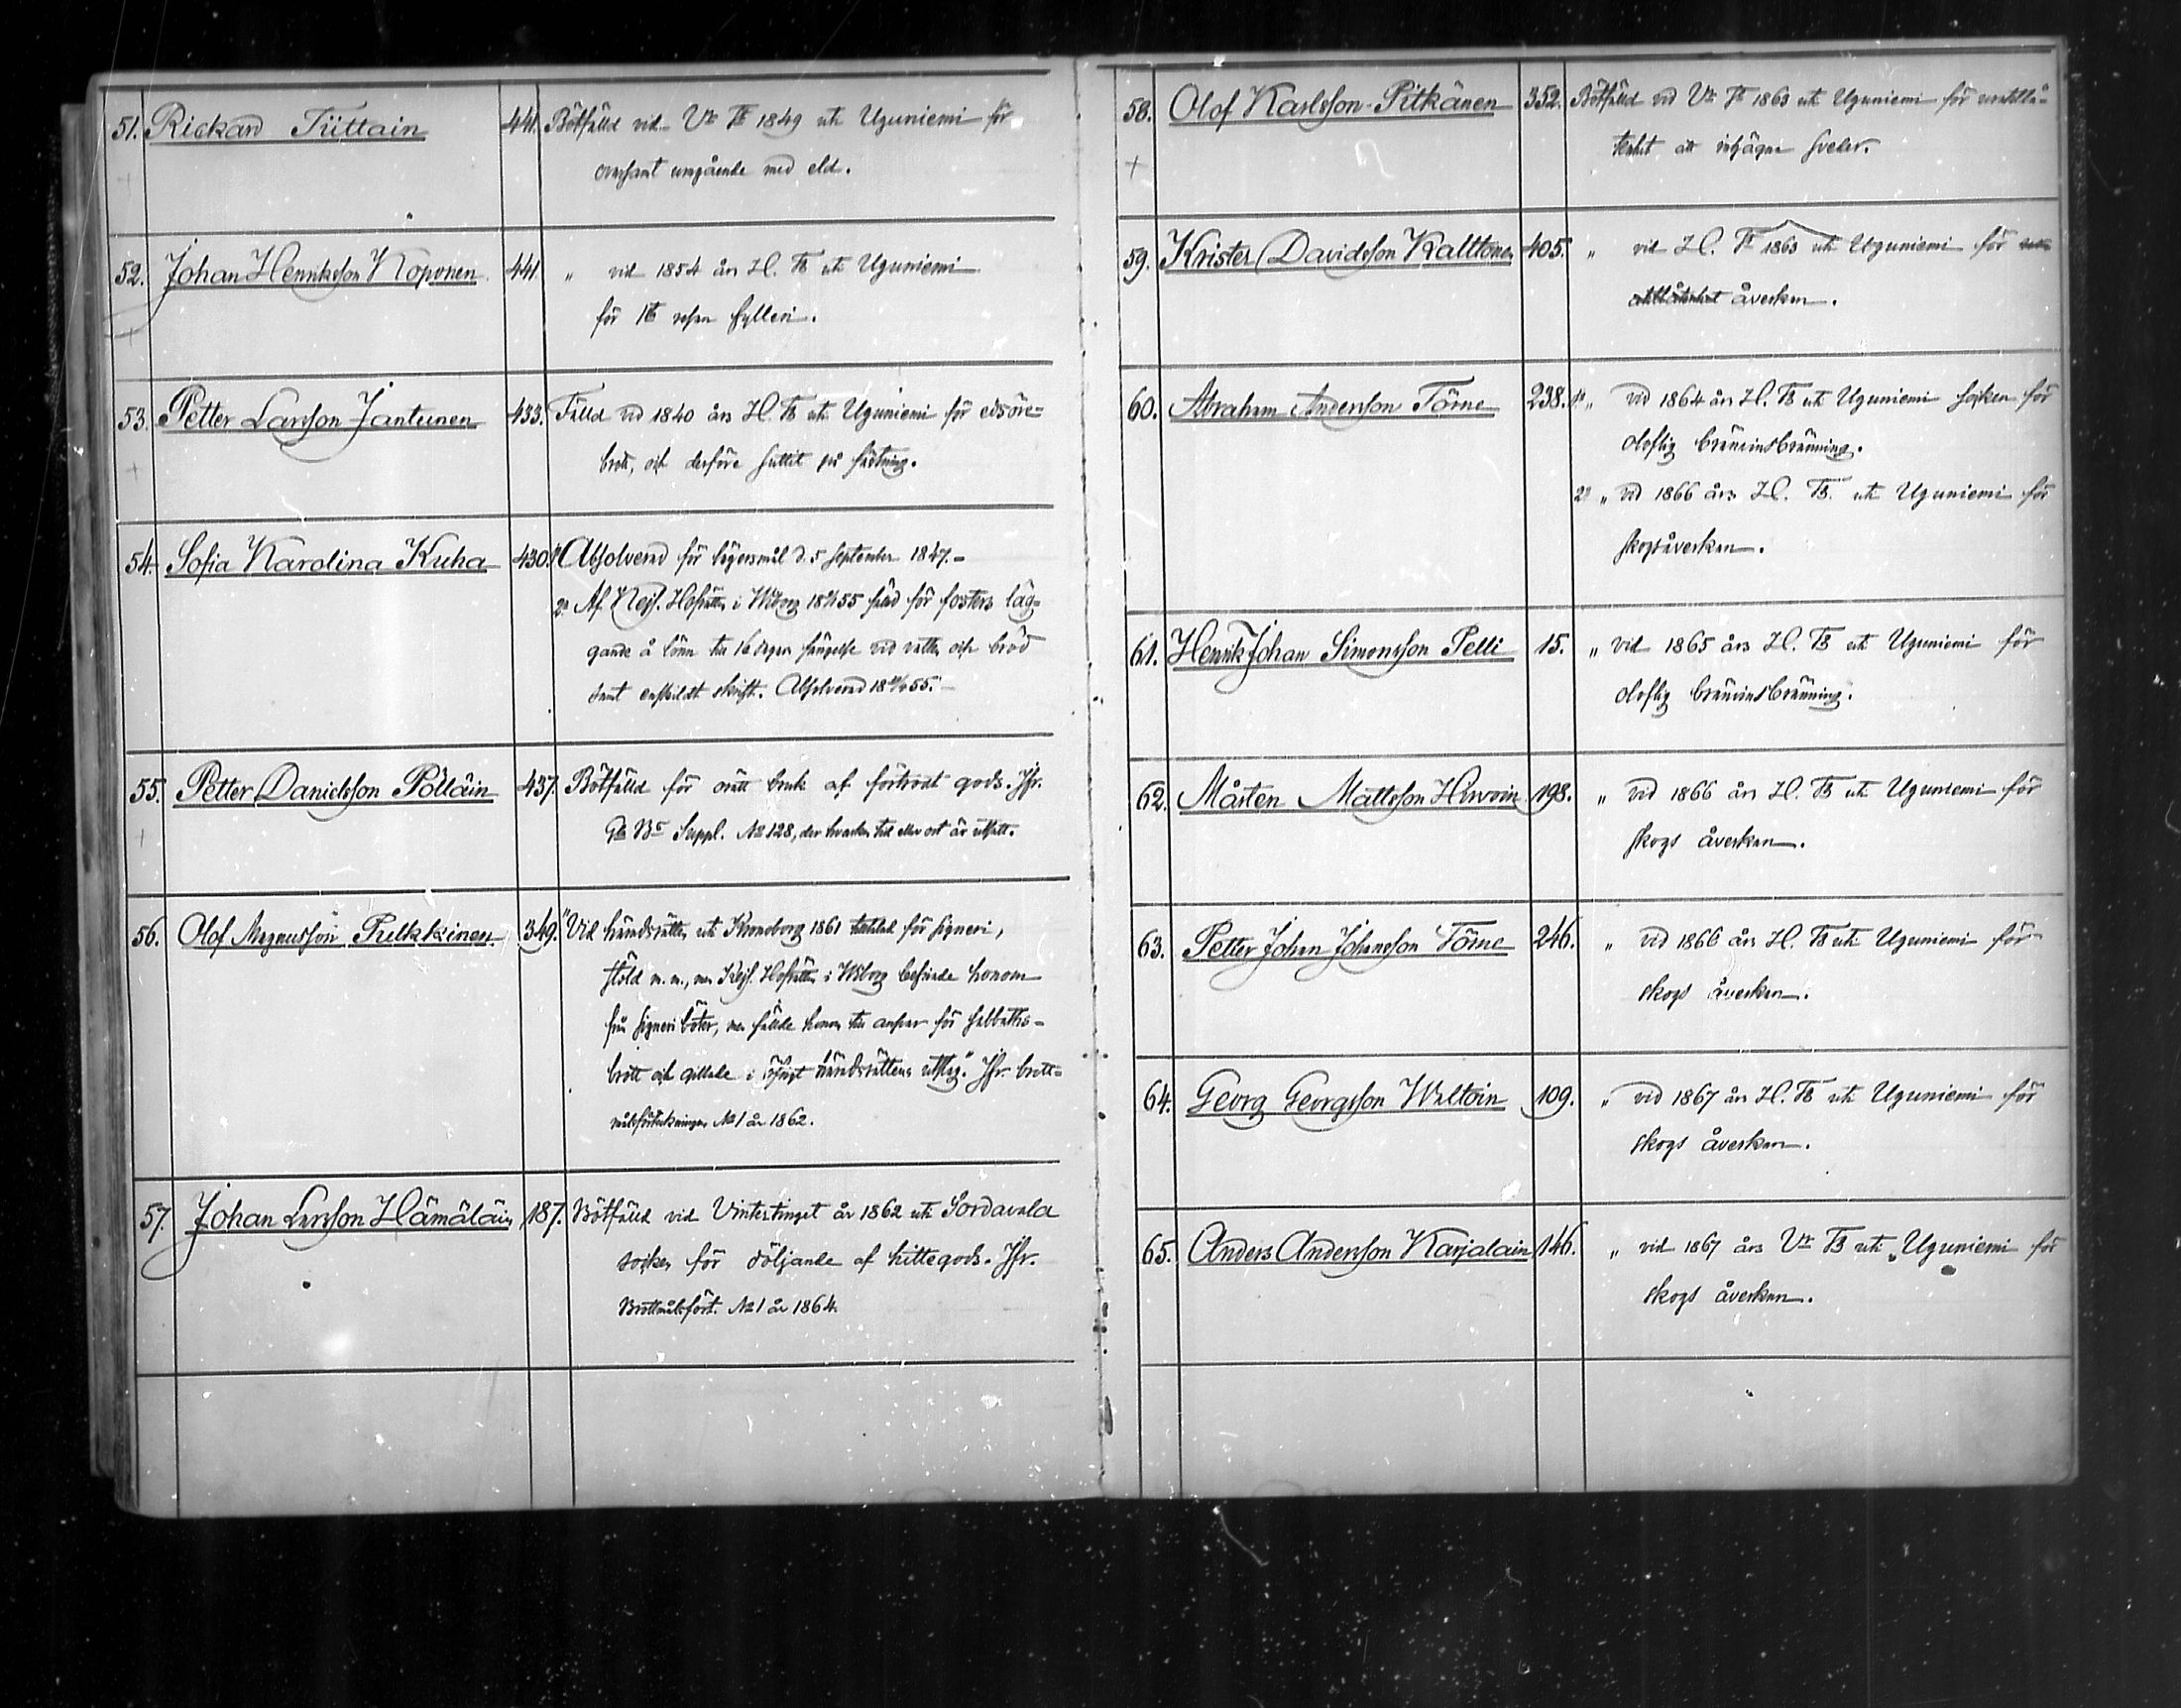 51. Rickard Tiittain 441. Bötfälld vid Vr Tg 1849 uti Uguniemi för
ovarsamt umgående med eld.
52. Johan Henriksson Koponen 441. " vid 1854 års H. Tg uti Uguniemi
för 1sta resan fylleri.
53. Petter Larsson Jantunen 433. Fälld vid 1840 års H. Tg uti Uguniemi för edsöre-
brott, och derföre suttit på fästning.
54. Sofia Karolina Kuha 430. 1º Absolverad för lägersmål d. 5 September 1847.-
2º Af Kejs. Hofrätten i Wiborg 18 55 fäld för fosters läg-
gande å lönn till 16 dagars fängelse vid vatten och bröd
samt enskildt skrift. Absolverad 18 55.-
55. Petter Danielsson Pölläin 437. Bötfälld för orätt bruk af förtrodt gods. Jfr.
Suppl. No 128, der hvarken tid eller ort är utsatt.
56. Olof Magnusson Pulkkinen 349. "Vid häradsrätten uti Kronoborg 1861 tilltalad för signeri,
stöld m. m., men Kejs. Hofrätten i Wiborg befriade honom
från signeri böter, men fällde honom till ansvar för sabbaths-
brott och gillade i öfrigt häradsrättens utslag." Jfr. brott-
målsförteckningen No 1 år 1862.
57. Johan Larsson Hämäläin 187. Bötfälld vid Vintertinget år 1862 uti Sordavala
socken för döljande af hittegods. Jfr.
Brottmålsfört. No 1 år 1864.
58. Olof Karlsson Pitkänen 352. Bötfälld vid Vr Tg 1863 uti Uguniemi för uraktlå-
tenhet att inhägna sveder.
59. Krister Davidsson Kalttonen 405. " vid H. Tg 1863 uti Uguniemi för
åverkan.
60. Abraham Andersson Törne 238. 1º " vid 1864 års H. Tg uti Uguniemi socken för
olaflig bränvinsbränning.
2º " vid 1866 års H. Tg uti Uguniemi för
skogsåverkan.
61. Henrik Johan Simonsson Pelli 15. " vid 1865 års H. Tg uti Uguniemi för
olaflig bränvinsbränning.
62. Mårten Mattsson Hirvoin 198. " vid 1866 års H. Tg uti Uguniemi för
skogs åverkan.
63. Petter Johan Johansson Törne 246. " vid 1866 års H. Tg uti Uguniemi för
skogs åverkan.
64. Georg Georgsson Waltoin 109. " vid 1867 års H. Tg uti Uguniemi för
skogs åverkan.
65. Anders Andersson Karjalain 146. " vid 1867 års Vr Tg uti Uguniemi för
skogs åverkan.